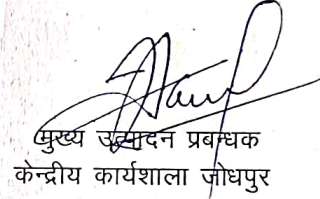 मुख्य उत्पादन प्रबन्धक
केन्द्रीय कार्यशाला जोधपुर